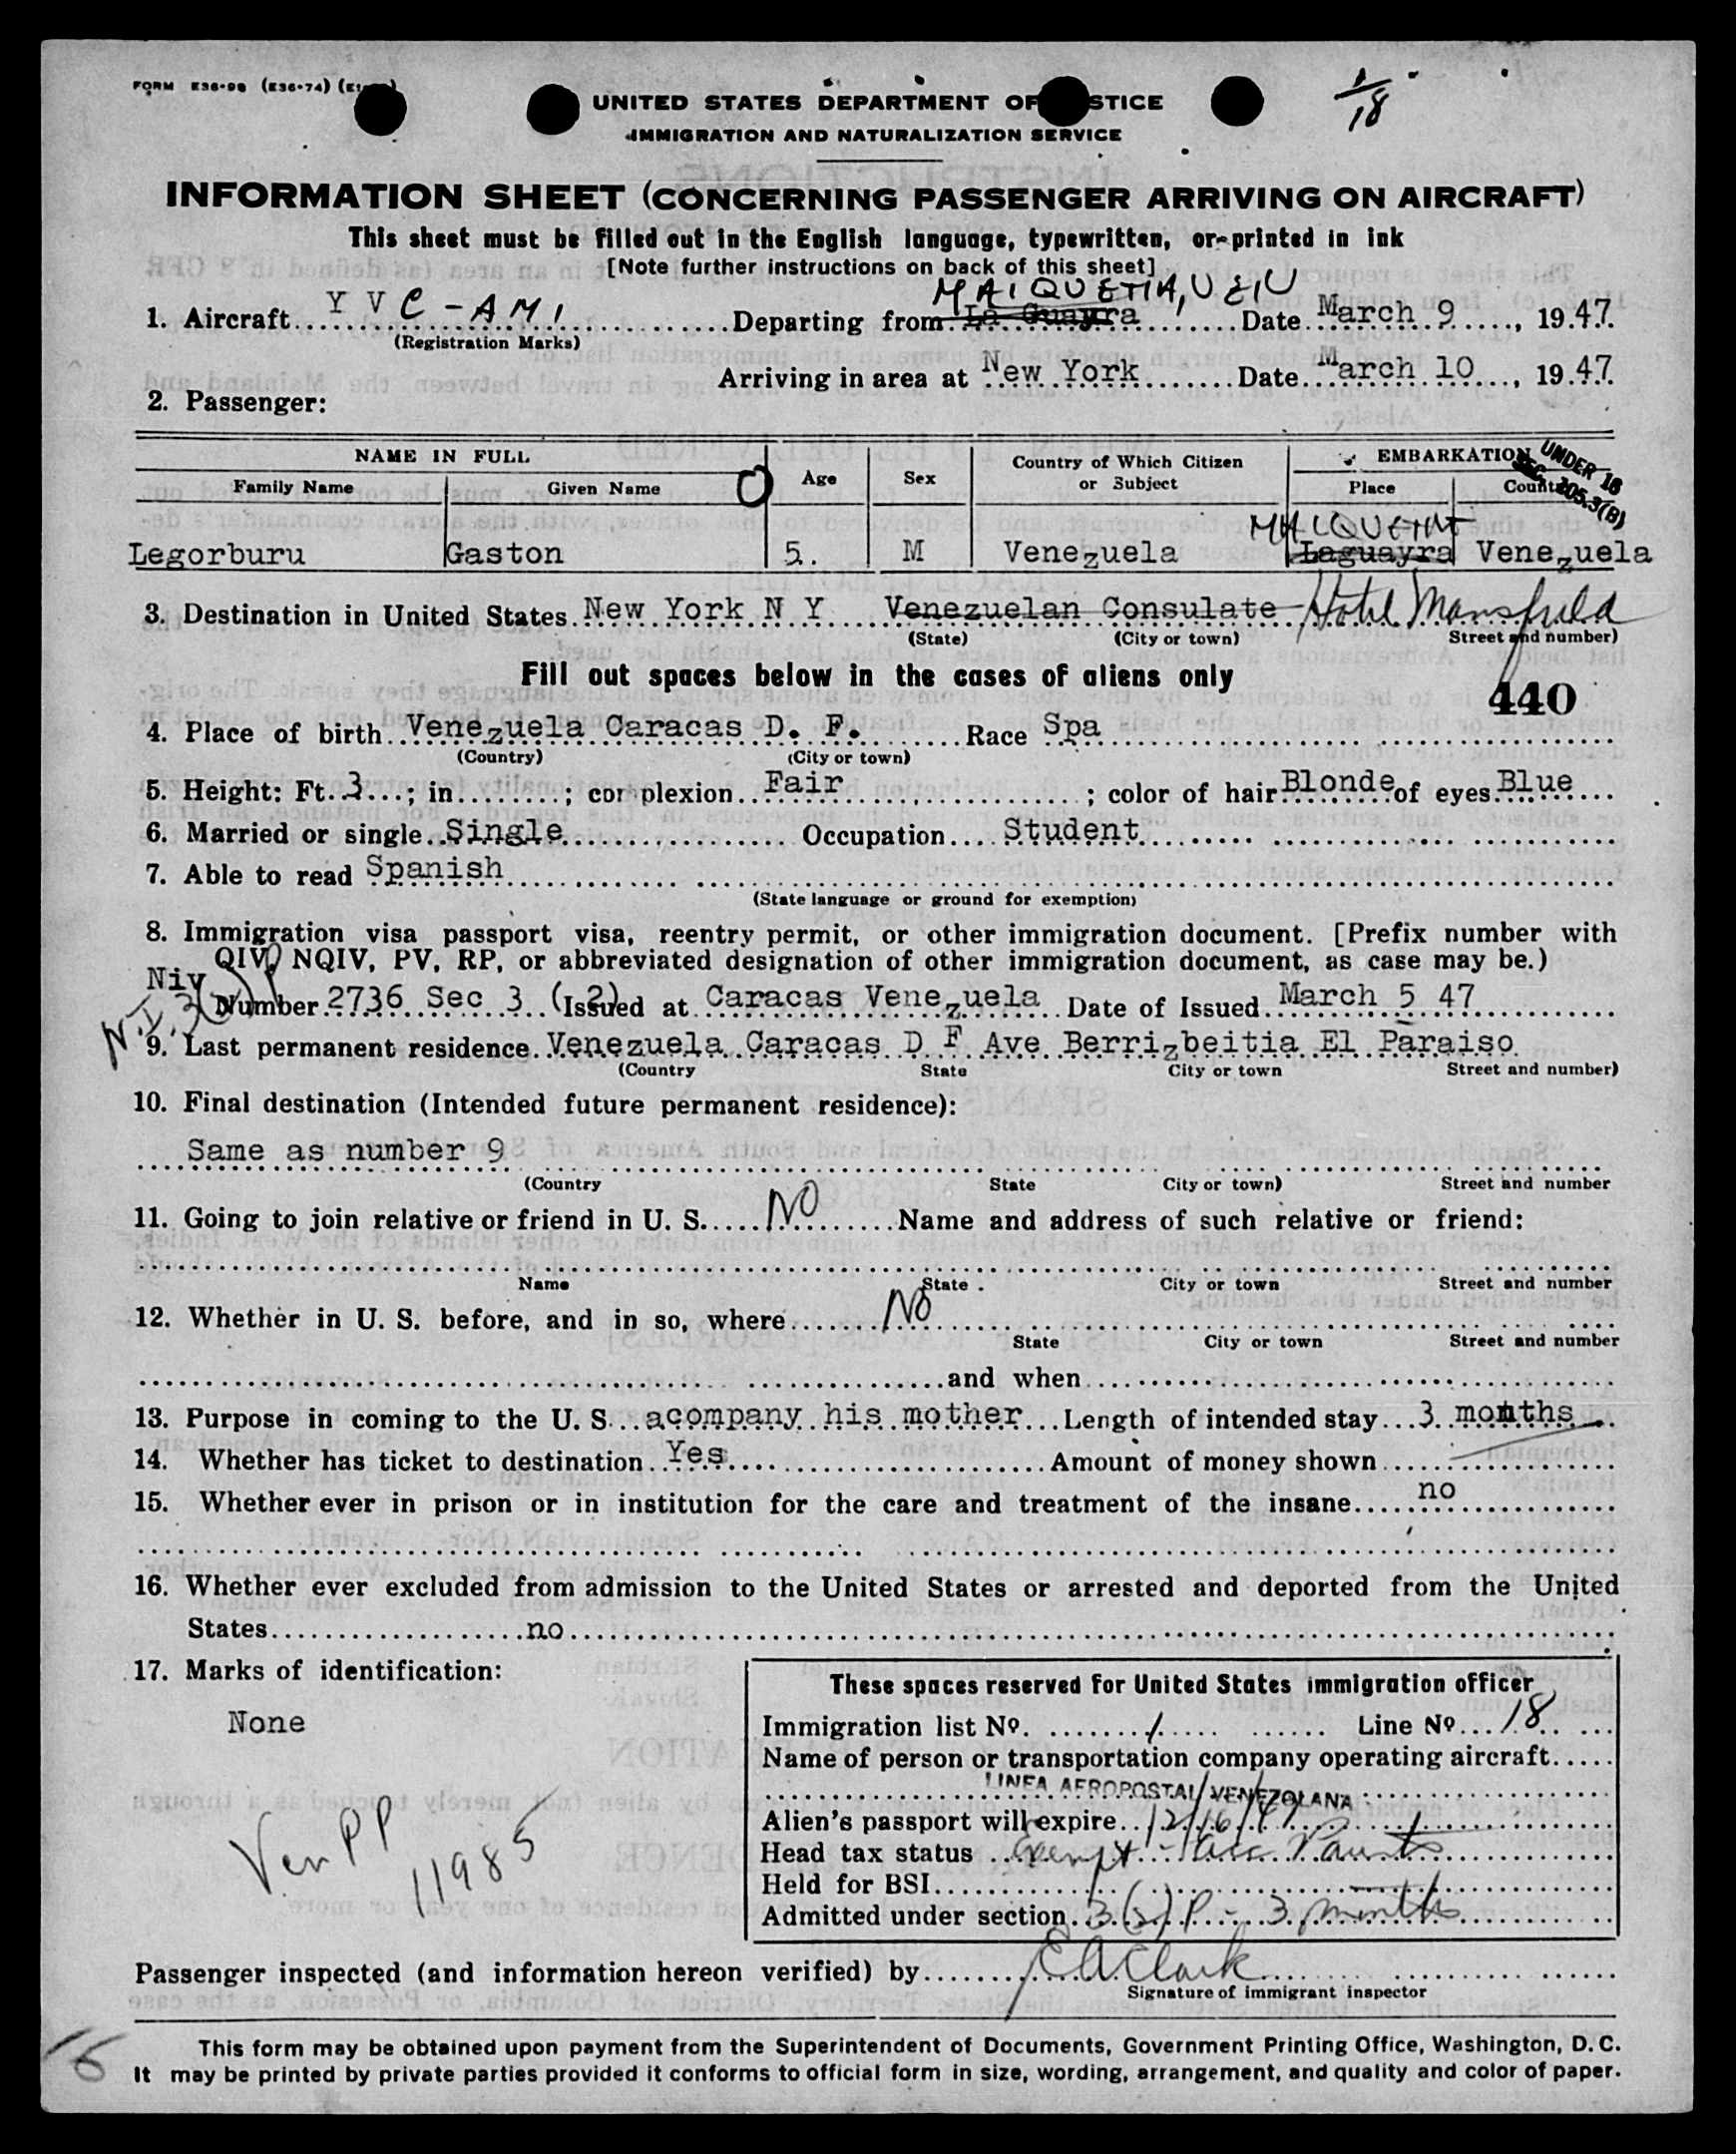 FORM E36-98 (E36-74)
1/18
UNITED STATES DEPARTMENT OF STICE
IMMIGRATION AND NATURALIZATION SERVICE
INFORMATION SHEET (CONCERNING PASSENGER ARRIVING ON AIRCRAFT)
This sheet must be filled out in the English language, typewritten, or printed in ink
[Note further instructions on back of this sheet]
MAIQUETIA,
1. Aircraft Y V C - A M I Departing from La Guayra Date March 9, 1947.
(Registration Marks)
Arriving in area at New York Date March 10, 1947.
2. Passenger:
NAME IN FULL Age Sex Country of Which Citizen or Subject EMBARKATION
Family Name Given Name Place Country
UNDER 16
SEC. 105.3(B)
MAIQUETIA
Legorburu Gaston 5. M Venezuela Laguayra Venezuela
3. Destination in United States New York N Y Venezuelan Consulate Hotel Mansfield
(State) (City or town) Street and number)
Fill out spaces below in the cases of aliens only
440
4. Place of birth Venezuela Caracas D. F. Race Spa
(Country) (City or town)
5. Height: Ft. 3; in; complexion Fair; color of hair Blonde of eyes Blue
6. Married or single Single Occupation Student
7. Able to read Spanish
(State language or ground for exemption)
8. Immigration visa passport visa, reentry permit, or other immigration document. [Prefix number with
QIV, NQIV, PV, RP, or abbreviated designation of other immigration document, as case may be.)
Niv Number 2736 Sec 3 (2) Issued at Caracas Venezuela Date of Issued March 5 47
9. Last permanent residence Venezuela Caracas D F Ave Berrizbeitia El Paraiso
(Country State City or town Street and number)
10. Final destination (Intended future permanent residence):
Same as number 9
(Country State City or town) Street and number
11. Going to join relative or friend in U. S. NO Name and address of such relative or friend:
Name State City or town Street and number
12. Whether in U. S. before, and in so, where No
State City or town Street and number
and when
13. Purpose in coming to the U. S. acompany his mother Length of intended stay 3 months
14. Whether has ticket to destination Yes Amount of money shown
15. Whether ever in prison or in institution for the care and treatment of the insane no
16. Whether ever excluded from admission to the United States or arrested and deported from the United
States no
17. Marks of identification:
None
Ven PP
11985
These spaces reserved for United States immigration officer
Immigration list No. 1 Line No. 18
Name of person or transportation company operating aircraft
LINEA AEROPOSTAL VENEZOLANA
Alien's passport will expire 12/16/47
Head tax status Exempt
Held for BSI
Admitted under section 3(2) P - 3 months
Passenger inspected (and information hereon verified) by E A Clark
Signature of immigrant inspector
This form may be obtained upon payment from the Superintendent of Documents, Government Printing Office, Washington, D. C.
It may be printed by private parties provided it conforms to official form in size, wording, arrangement, and quality and color of paper.